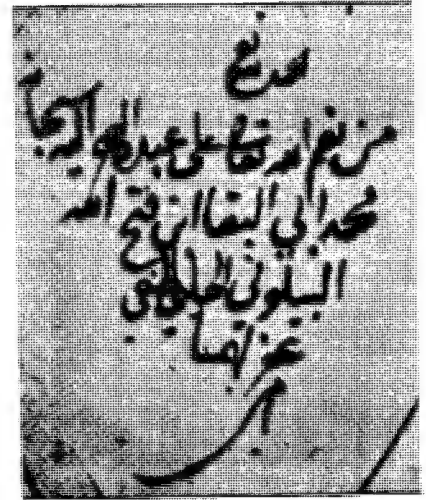 من نعم الله تعالى على عبده اليه سبحانه
محمد ابي البقا ابن فتح الله
البيلوني الحلبي الحنفي
غفر لهما